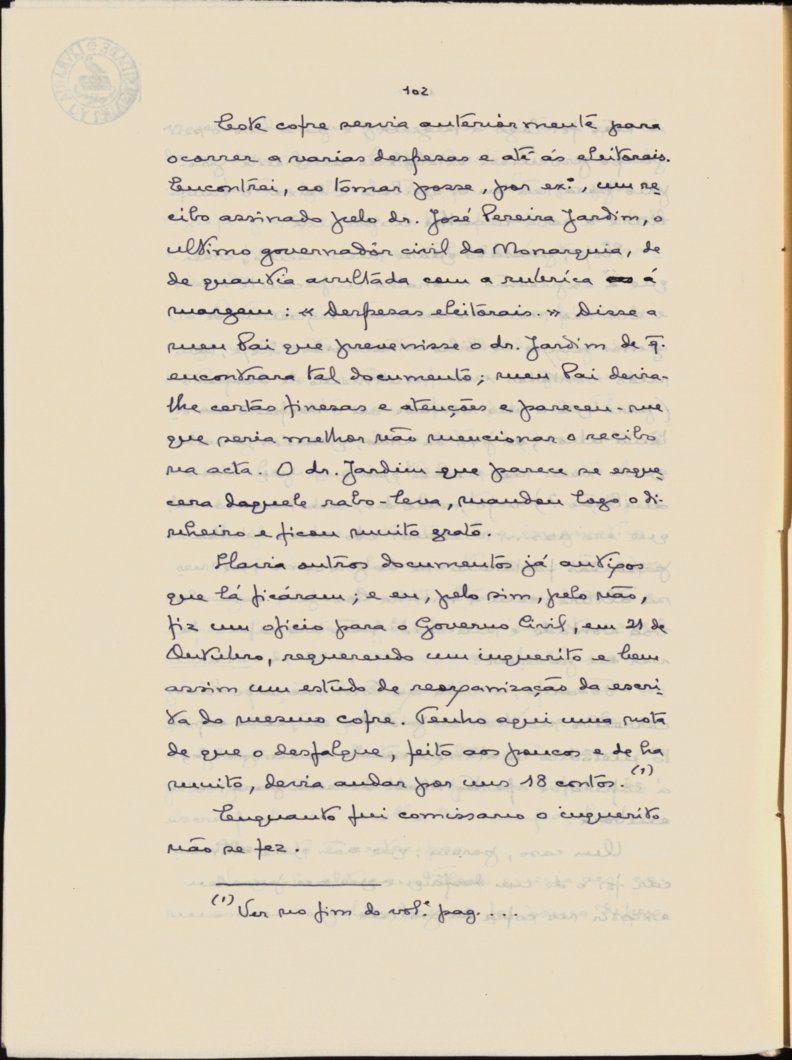 102
Este cofre servia anteriórmente para
ocorrer a varias despesas e até ás eleitorais.
Encontrei, ao tomar posse, por ex.º, um re-
cibo assinado pelo dr. José Pereira Jardim, o
ultimo governadôr civil da Monarquia, de
de quantia avultáda com a rubrica á
margem: « Despesas eleitorais. » Disse a
meu Pai que prevenisse o dr. Jardim de q.
encontrara tal documento; meu Pai devia-
lhe certas finesas e atenções e pareceu-me
que seria melhor não mencionar o recibo
na acta. O dr. Jardim que parece se esque-
cera daquele rabo-leva, mandou logo o di-
nheiro e ficou muito grato.
Havia outros documentos já antigos
que lá ficáram; e eu, pelo sim, pelo não,
fiz um oficio para o Governo Civil, em 21 de
Outubro, requerendo um inquerito e bem
assim um estudo de reorganização da escri-
ta do mesmo cofre. Tenho aqui uma nota
de que o desfalque, feito aos poucos e de ha
muito, devia andar por uns 18 contos. (1)
Enquanto fui comissario o inquerito
não se fez.
(1) Ver no fim do vol.º pag. ...